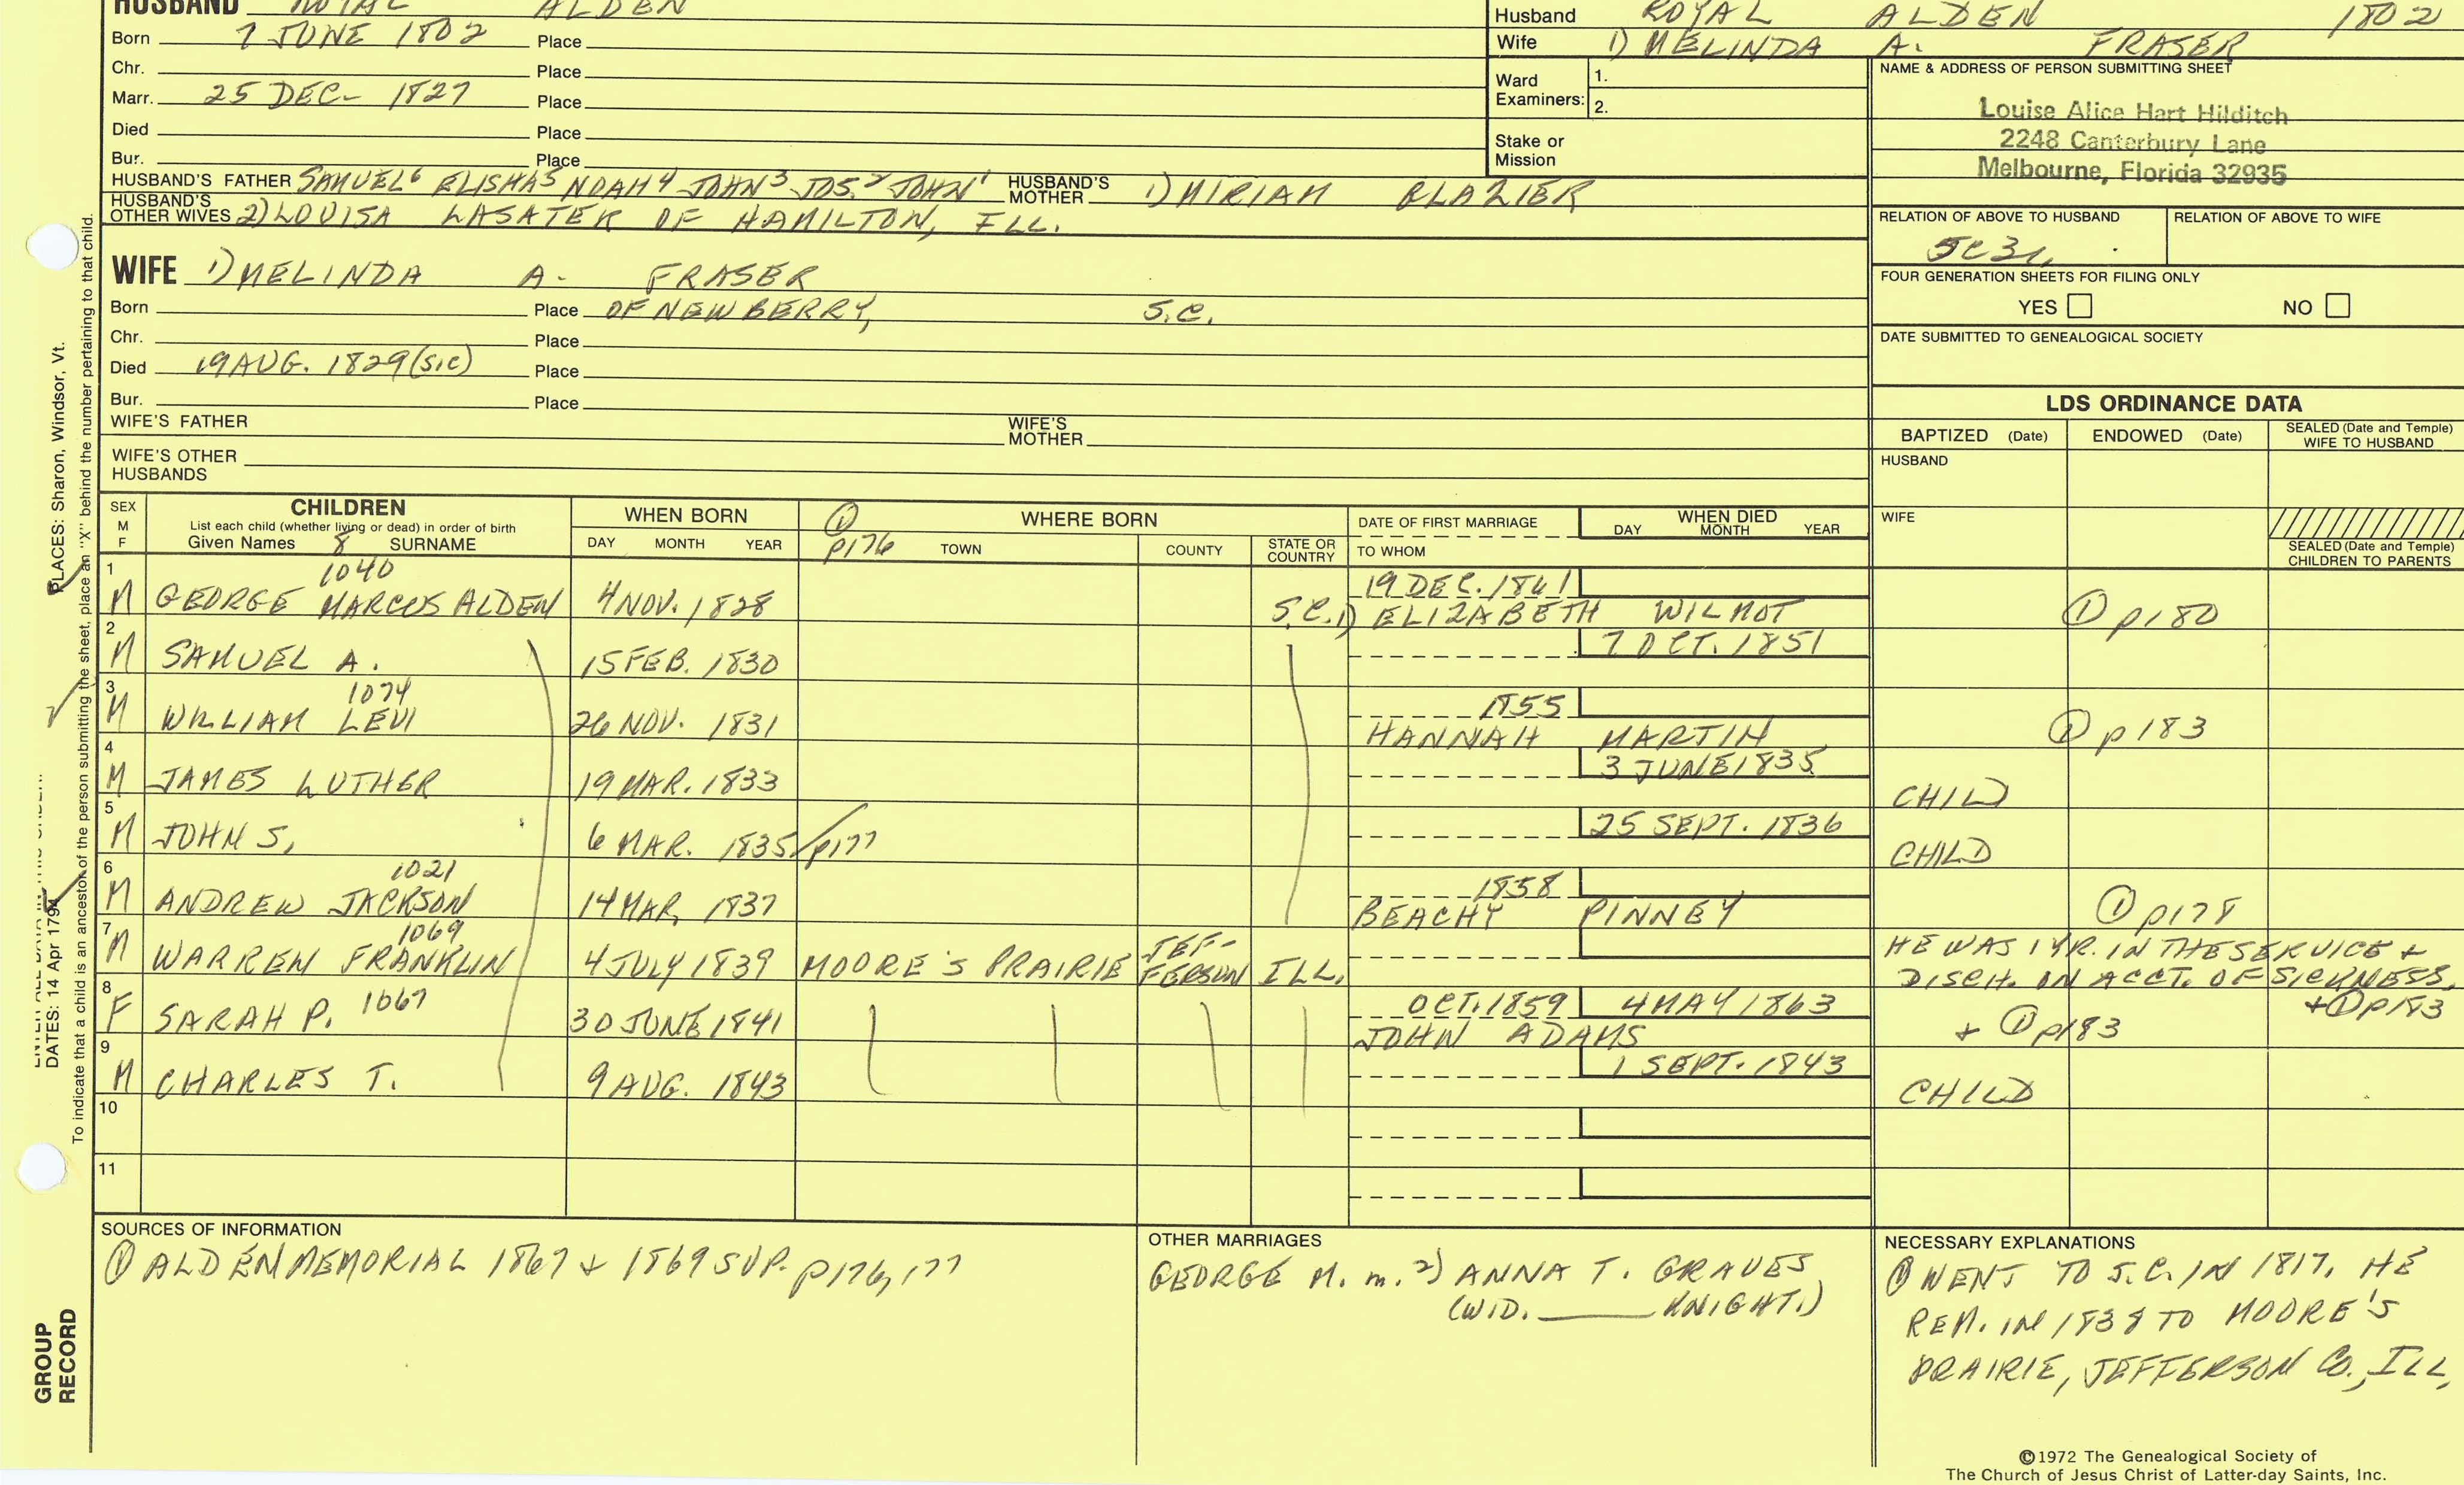 HUSBAND ROYAL ALDEN
Born 7 JUNE 1802 Place
Chr. Place
Marr. 25 DEC- 1827 Place
Died Place
Bur. Place
HUSBAND'S FATHER SAMUEL⁶ ELISHA⁵ NOAH⁴ JOHN³ JOS.² JOHN¹ HUSBAND'S MOTHER 1) MIRIAM BLAZIER
HUSBAND'S OTHER WIVES 2) LOUISA LASATER OF HAMILTON, ILL.
Husband ROYAL ALDEN 1802
Wife 1) MELINDA A. FRASER
Ward Examiners: 1.
2.
Stake or Mission
NAME & ADDRESS OF PERSON SUBMITTING SHEET
Louise Alice Hart Hilditch
2248 Canterbury Lane
Melbourne, Florida 32935
RELATION OF ABOVE TO HUSBAND RELATION OF ABOVE TO WIFE
FOUR GENERATION SHEETS FOR FILING ONLY
YES NO
DATE SUBMITTED TO GENEALOGICAL SOCIETY
WIFE 1) MELINDA A- FRASER
Born Place OF NEWBERRY, S.C.
Chr. Place
Died 19 AUG. 1829 (SIC) Place
Bur. Place
WIFE'S FATHER WIFE'S MOTHER
WIFE'S OTHER HUSBANDS
LDS ORDINANCE DATA
BAPTIZED (Date) ENDOWED (Date) SEALED (Date and Temple) WIFE TO HUSBAND
HUSBAND
WIFE
SEALED (Date and Temple) CHILDREN TO PARENTS
SEX M F CHILDREN
List each child (whether living or dead) in order of birth
Given Names 8 SURNAME
WHEN BORN
DAY MONTH YEAR
① p176 WHERE BORN
TOWN COUNTY STATE OR COUNTRY
DATE OF FIRST MARRIAGE
TO WHOM
WHEN DIED
DAY MONTH YEAR
1 M GEORGE MARCUS ALDEN 1040 4 NOV. 1828 S.C. 19 DEC. 1861 1) ELIZABETH WILMOT ① p180
2 M SAMUEL A. 15 FEB. 1830 7 OCT. 1851
3 M WILLIAM LEVI 1074 26 NOV. 1831 1855 HANNAH MARTIN ① p183
4 M JAMES LUTHER 19 MAR. 1833 3 JUNE 1835 CHILD
5 M JOHN S. 6 MAR. 1835 p177 25 SEPT. 1836 CHILD
6 M ANDREW JACKSON 1021 14 MAR. 1837 1858 BEACHY PINNEY ① p178
7 M WARREN FRANKLIN 1069 4 JULY 1839 MOORE'S PRAIRIE JEF-FERSON ILL. HE WAS 1 YR. IN THE SERVICE + DISCH. ON ACCT. OF SICKNESS, + ① p183
8 F SARAH P. 1067 30 JUNE 1841 OCT. 1859 4 MAY 1863 JOHN ADAMS + ① p183
9 M CHARLES T. 9 AUG. 1843 1 SEPT. 1843 CHILD
10
11
SOURCES OF INFORMATION
① ALDEN MEMORIAL 1867 + 1869 SUP. p176, 177
OTHER MARRIAGES
GEORGE M. m. 2) ANNA T. GRAVES
(WID. ____ KNIGHT.)
NECESSARY EXPLANATIONS
① WENT TO S.C. IN 1817. HE
REM. IN 1838 TO MOORE'S
PRAIRIE, JEFFERSON CO., ILL,
©1972 The Genealogical Society of
The Church of Jesus Christ of Latter-day Saints, Inc.
PLACES: Sharon, Windsor, Vt.
DATES: 14 Apr 1794
To indicate that a child is an ancestor of the person submitting the sheet, place an "X" behind the number pertaining to that child.
GROUP
RECORD